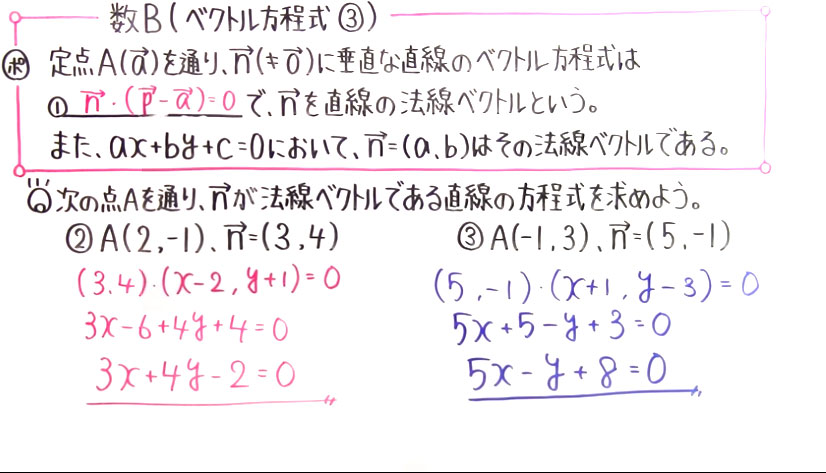 数B(ベクトル方程式③)
㋭ 定点A(a→)を通り、n→(≠o→)に垂直な直線のベクトル方程式は
① n→・(p→-a→)=0 で、n→を直線の法線ベクトルという。
また、ax+by+c=0において、n→=(a,b)はその法線ベクトルである。
次の点Aを通り、n→が法線ベクトルである直線の方程式を求めよう。
②A(2,-1)、n→=(3,4)
(3.4)・(x-2,y+1)=0
3x-6+4y+4=0
3x+4y-2=0
③A(-1,3)、n→=(5,-1)
(5,-1)・(x+1,y-3)=0
5x+5-y+3=0
5x-y+8=0